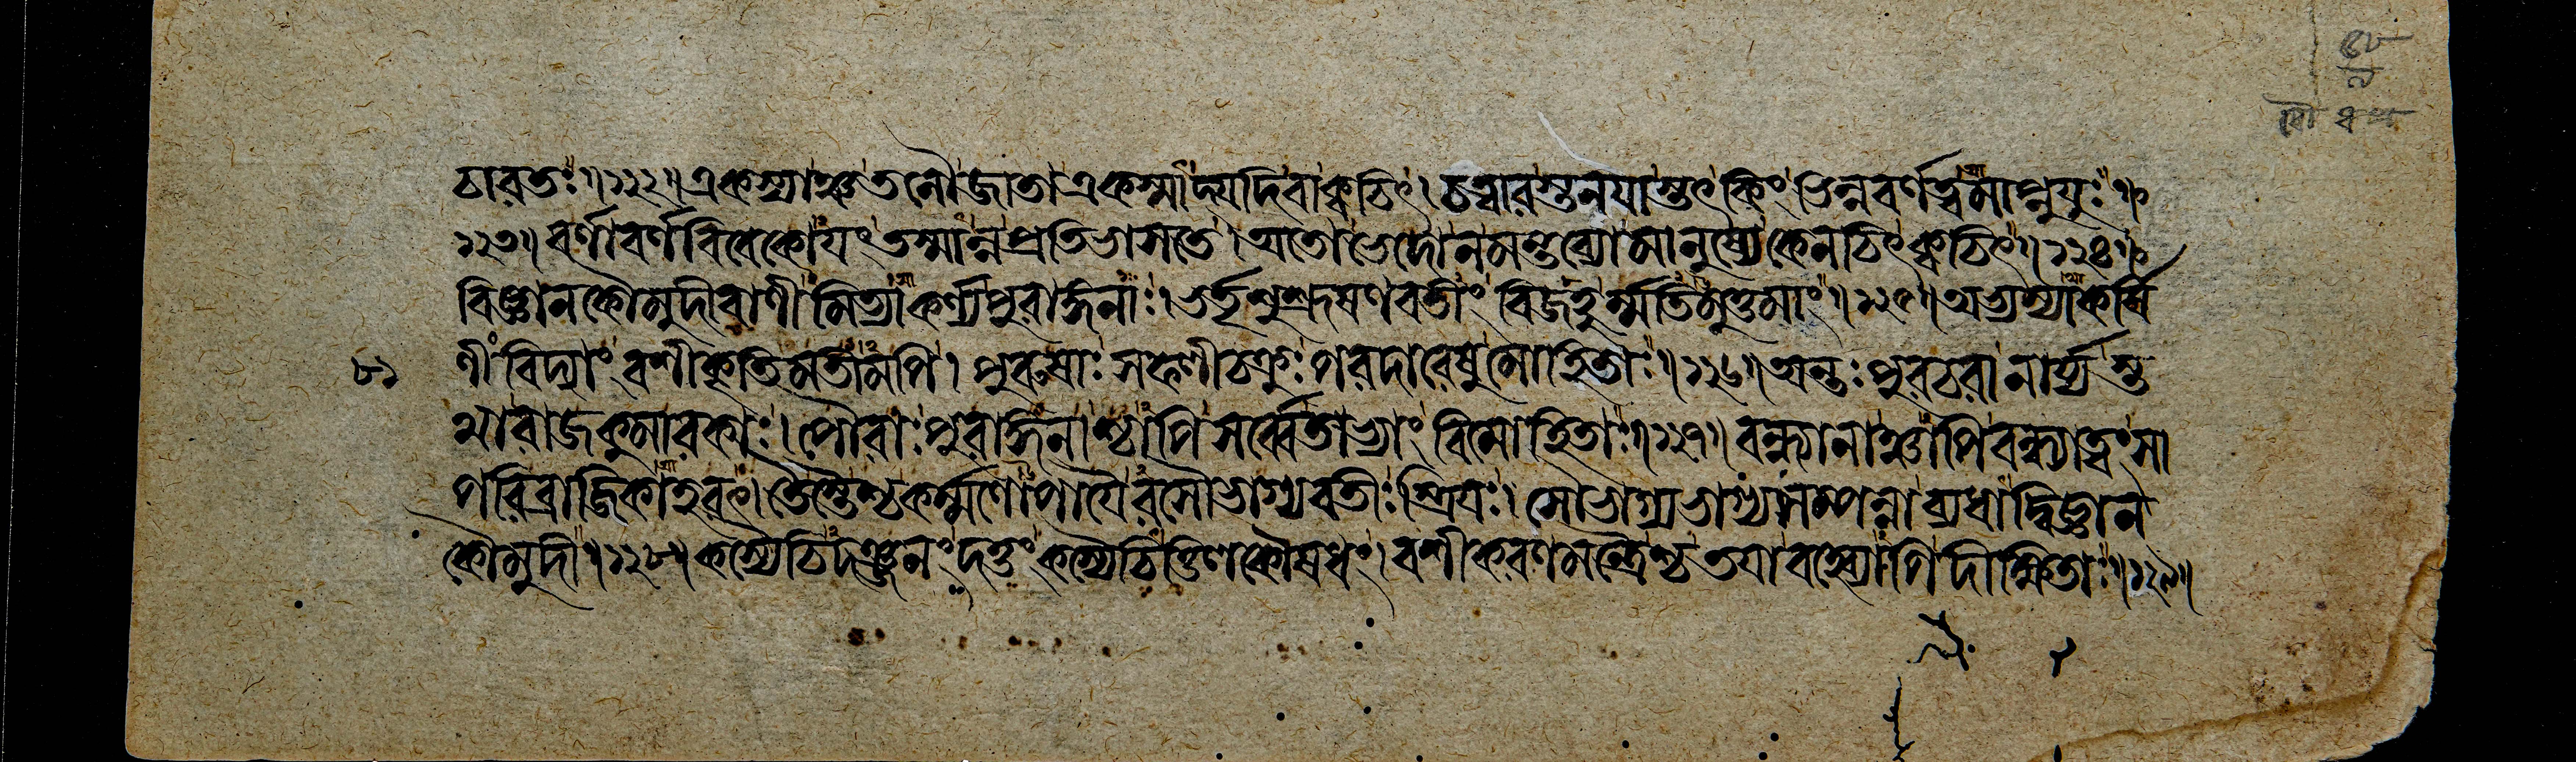 চারতঃ॥১২২॥একস্যাঞ্চতনৌজাতাএকস্মাদ্যদিবাক্বচিৎ।চত্বারস্তনযাস্তৎকিং ভিন্নবর্ণত্বমাপ্নুযুঃ॥
১২৩॥বর্ণাবর্ণবিবেকোযং তস্মান্নপ্রতিভাসতে।অতোভেদোনমন্তব্যোমানুষ্যেকেনচিৎক্বচিৎ॥১২৪॥
বিজ্ঞানকৌমুদীবাণীমিত্যাকর্ণ্যপুরাঙ্গনাঃ।ভর্তৃশুশ্রূষণবতীং বিজহুর্ম্মতিমুত্তমাং॥১২৫॥অভ্যস্যাকর্ষি
ণীং বিদ্যাং বশীকৃতিমতীমপি।পুরুষাঃসফলীচক্রুঃপরদারেষুমোহিতাঃ॥১২৬॥অন্তঃপুরচরানার্য্যস্ত
থারাজকুমারকাঃ।পৌরাঃপুরাঙ্গনাশ্চাপিসর্ব্বেতাভ্যাং বিমোহিতাঃ॥১২৭॥বন্ধ্যানাঞ্চাপিবন্ধ্যাত্বংসা
পরিব্রাজিকাহরৎ।তৈস্তৈশ্চকর্ম্মণোপাযৈরসৌভাগ্যবতীঃস্ত্রিযঃ।সৌভাগ্যভাগ্যসম্পন্নাব্যধাদ্বিজ্ঞান
কৌমুদী॥১২৮॥কস্যৈচিদঞ্জনং দত্তং কস্যৈচিত্তিলকৌষধং।বশীকরণমন্ত্রৈশ্চতযাবহ্ব্যোপিদীক্ষিতাঃ॥১২৯॥
৮১